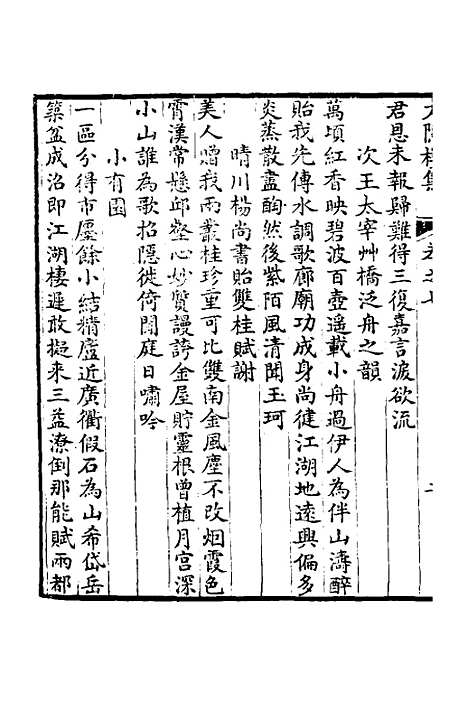 君恩未報歸難得三復嘉言淚欲流
次王太宰艸橋泛舟之韻
萬頃紅香映碧波百壺遥載小舟過伊人為伴山濤醉
貽我先傳水調歌廊廟功成身尚健江湖地遠興偏多
炎蒸散盡酶然後紫陌風清聞玉珂
晴川楊尚書貽雙桂賦謝
美人贈我兩叢桂珍重可比雙南金風塵不改烟霞色
霄漢常懸邱壑心妙質謾誇金屋貯靈根曾植月宮深
小山誰為歌招隱徙倚閒庭日嘯吟
小有園
一區分得市廛餘小結精廬近廣衢假石為山希岱岳
築盆成沼即江湖棲遲敢擬來三益潦倒那能賦兩都